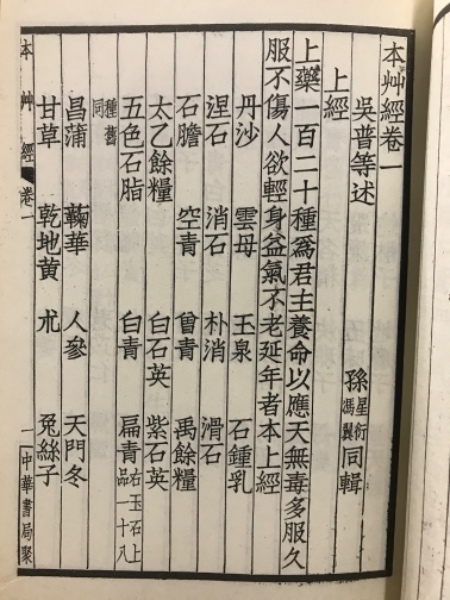 本艸經卷一
吳普等述 孫星衍馮翼同輯
上經
上藥一百二十種爲君主養命以應天無毒多服久
服不傷人欲輕身益氣不老延年者本上經
丹沙 雲母 玉泉 石鍾乳
涅石 消石 朴消 滑石
石膽 空青 曾青 禹餘糧
太乙餘糧 白石英 紫石英
五色石脂 白青 扁青 右玉石上品一十八
種舊同
昌蒲 鞠華 人參 天門冬
甘草 乾地黄 朮 兔絲子
本艸經 卷一 一 中華書局聚